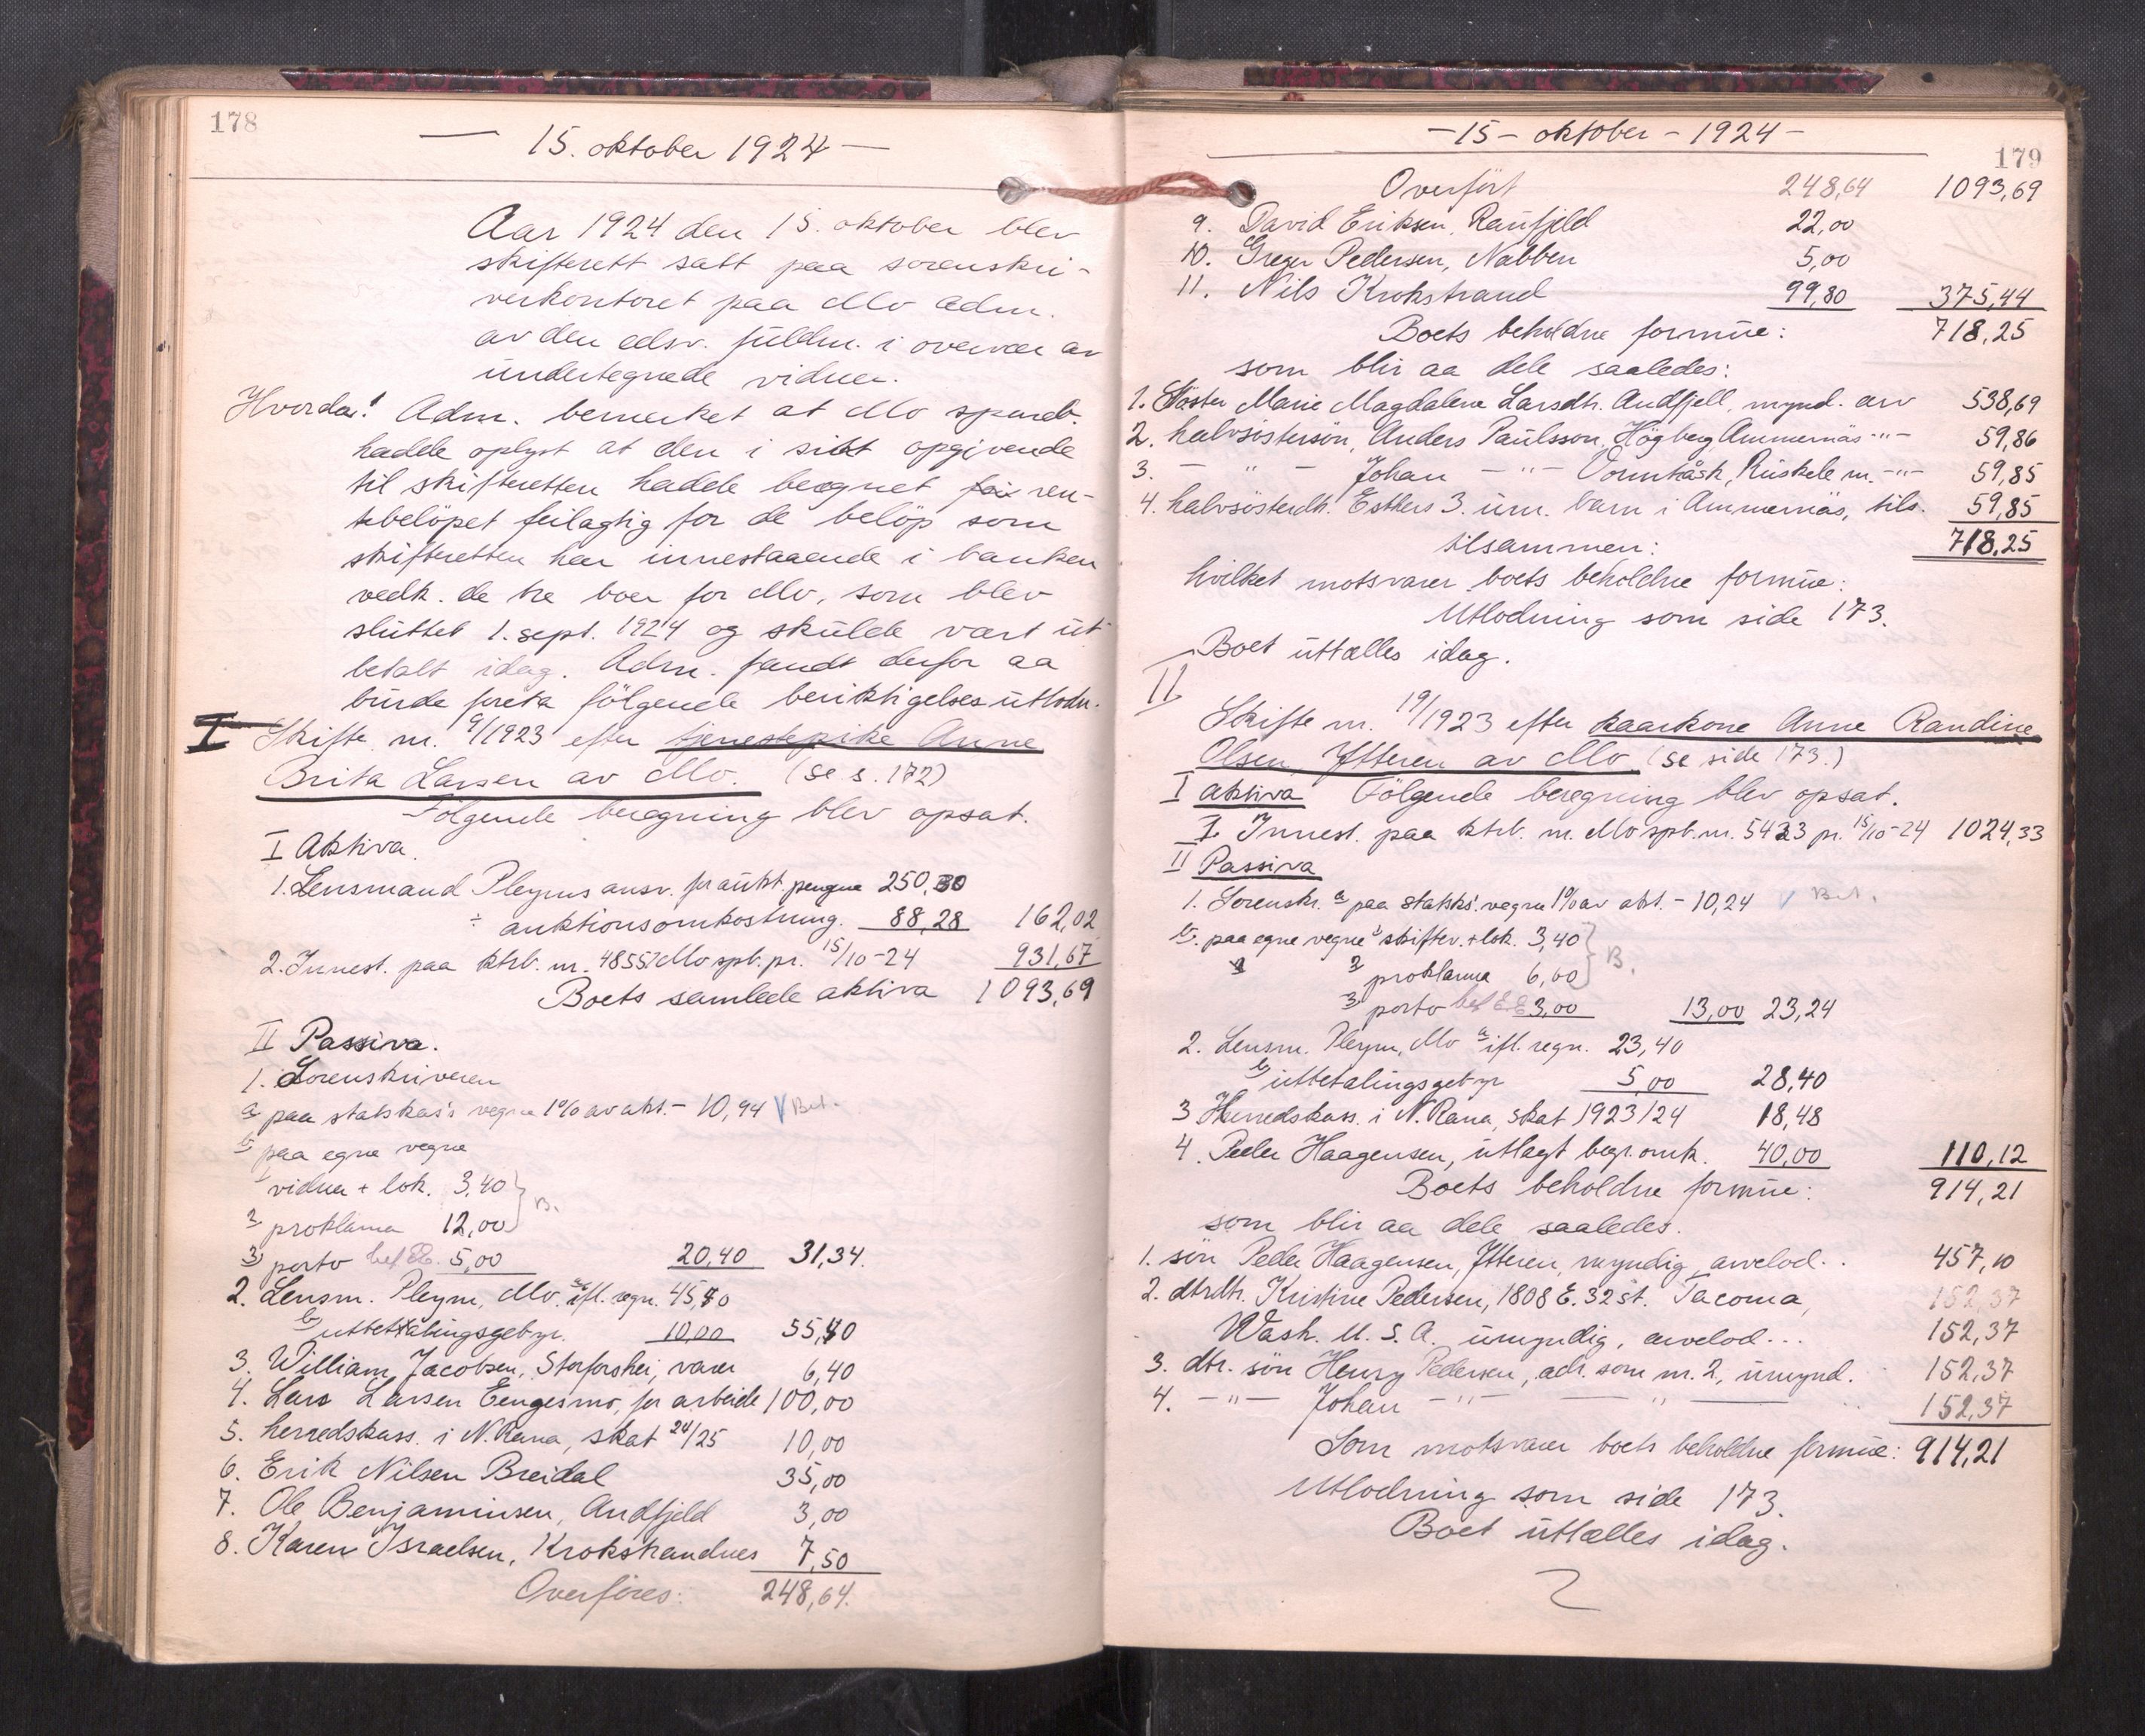 178
— 15. oktober 1924 —
Aar 1924 den 15. oktober blev
skifterett satt paa sorenskri-
verkontoret paa Mo adm.
av den edsv. fuldm. i overvær av
undertegnede vidner.
Hvorda! Adm. bemerket at Mo spareb.
hadde oplyst at den i sitt opgivende
til skifteretten hadde beregnet ren-
tebelöpet feilagtig for de belöp som
skifteretten har innestaaende i banken
vedk. de tre boer for Mo, som blev
sluttet 1. sept. 1924 og skulde vært ut
betalt idag. Adm. fandt derfor aa
burde foreta fölgende beriktigelsesutlodn.
I Skifte nr. 9/1923 efter tjenestepike Anne
Brita Larsen av Mo. (se s. 172)
Fölgende beregning blev opsat.
I Aktiva.
1. Lensmand Pleyms ansv. for aukt. pengene 250,30
÷ auktionsomkostning. 88,28 162,02
2. Innest. paa ktrb. nr. 4855 Mo spb. pr. 15/10-24 931,67
Boets samlede aktiva 1093,69
II Passiva.
1. Sorenskriveren
a paa statskas's vegne 1% av akt. - 10,94 V Bet.
b paa egne vegne
1 vidner + lok. 3,40
2 proklama 12,00 } B.
3) porto bet. 5,00 20,40 31,34.
2. Lensm. Pleym, Mo. a ifl. regn. 45,40
b utbetalingsgebyr. 10,00 55,40
3. William Jacobsen, Storforshei, varer 6,40
4. Lars Larsen Eengesmo, for arbeide 100,00
5. herredskass. i N. Rana, skat 24/25 10,00
6. Erik Nilsen Bredal 35,00
7. Ole Benjaminsen, Andfjeld 3,00
8. Karen Israelsen, Krokstrandnes 7,50
Overföres: 248,64.
— 15 — oktober — 1924 —
179
Overfört 248,64 1093,69
9. David Eriksen, Raufjeld 22,00
10. Greger Pedersen, Nabben 5,00
11. Nils Krokstrand 99,80 375,44
Boets beholdne formue: 718,25
som blir aa dele saaledes:
1. Söster Marie Magdalene Larsdtr. Andfjell, mynd. arv 538,69
2. halvsöstersön, Anders Paulsson, Högberg, Ammernäs -"- 59,86
3. — " — Johan — " — Vormträsk, Ruskele m. -"- 59,85
4. halvsösterdtr. Esthers 3. um. barn i Ammernäs, tils. 59,85
tilsammen: 718,25
hvilket motsvarer boets beholdne formue:
Utlodning som side 173.
Boet uttælles idag.
II
Skifte nr. 19/1923 efter kaarkone Anne Randine
Olsen, Ytteren av Mo (se side 173.)
I aktiva Fölgende beregning blev opsat.
1. Innest. paa ktrb. nr. Mo spb. nr. 5423 pr. 15/10-24 1024,33
II Passiva
1. Sorenskr. a paa statsks's vegne 1% av akt. - 10,24 V Bet.
b. paa egne vegne 1 skiftev. + lok. 3,40
2 proklama 6,60 } B.
3 porto bet 3,00 13,00 23,24
2. Lensm. Pleym, Mo a ifl. regn. 23,40
b utbetalingsgebyr 5,00 28,40
3 Herredskass. i N. Rana, skat 1923/24 18,48
4. Peder Haagensen, utlagt begr. omk. 40,00 110,12
Boets beholdne formue: 914,21
som blir aa dele saaledes.
1. sön Peder Haagensen, Ytteren, myndig, arvelod.. 457,10
2. dtrdtr. Kristine Pedersen, 1808 E. 32 st. Tacoma, 152,37
Wash. U. S. A. umyndig, arvelod... 152,37
3. dtr. sön Henry Pedersen, adr. som nr. 2, umynd. 152,37
4. — " — Johan — " — " — 152,37
Som motsvarer boets beholdne formue: 914,21
Utlodning som side 173.
Boet uttælles idag.